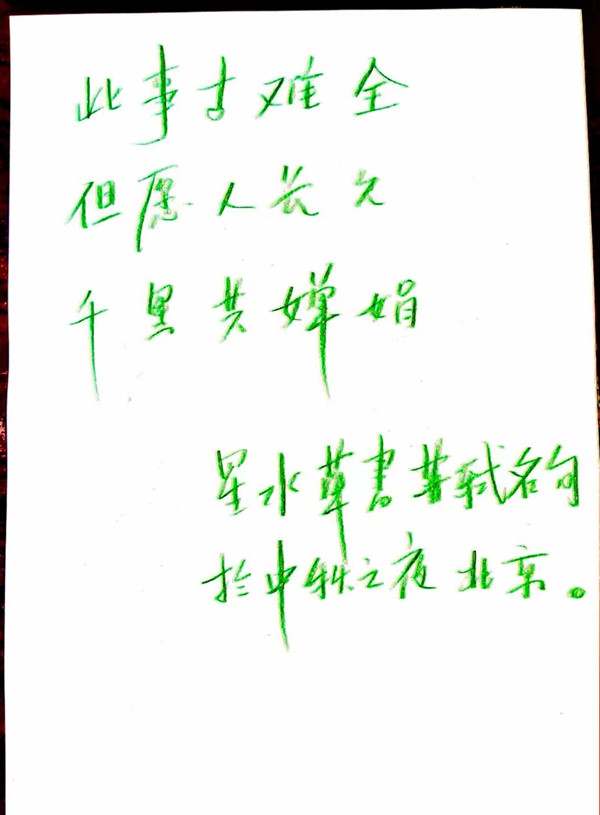 此事古难全
但愿人长久
千里共婵娟
星水草書苏轼名句
於中秋之夜北京。